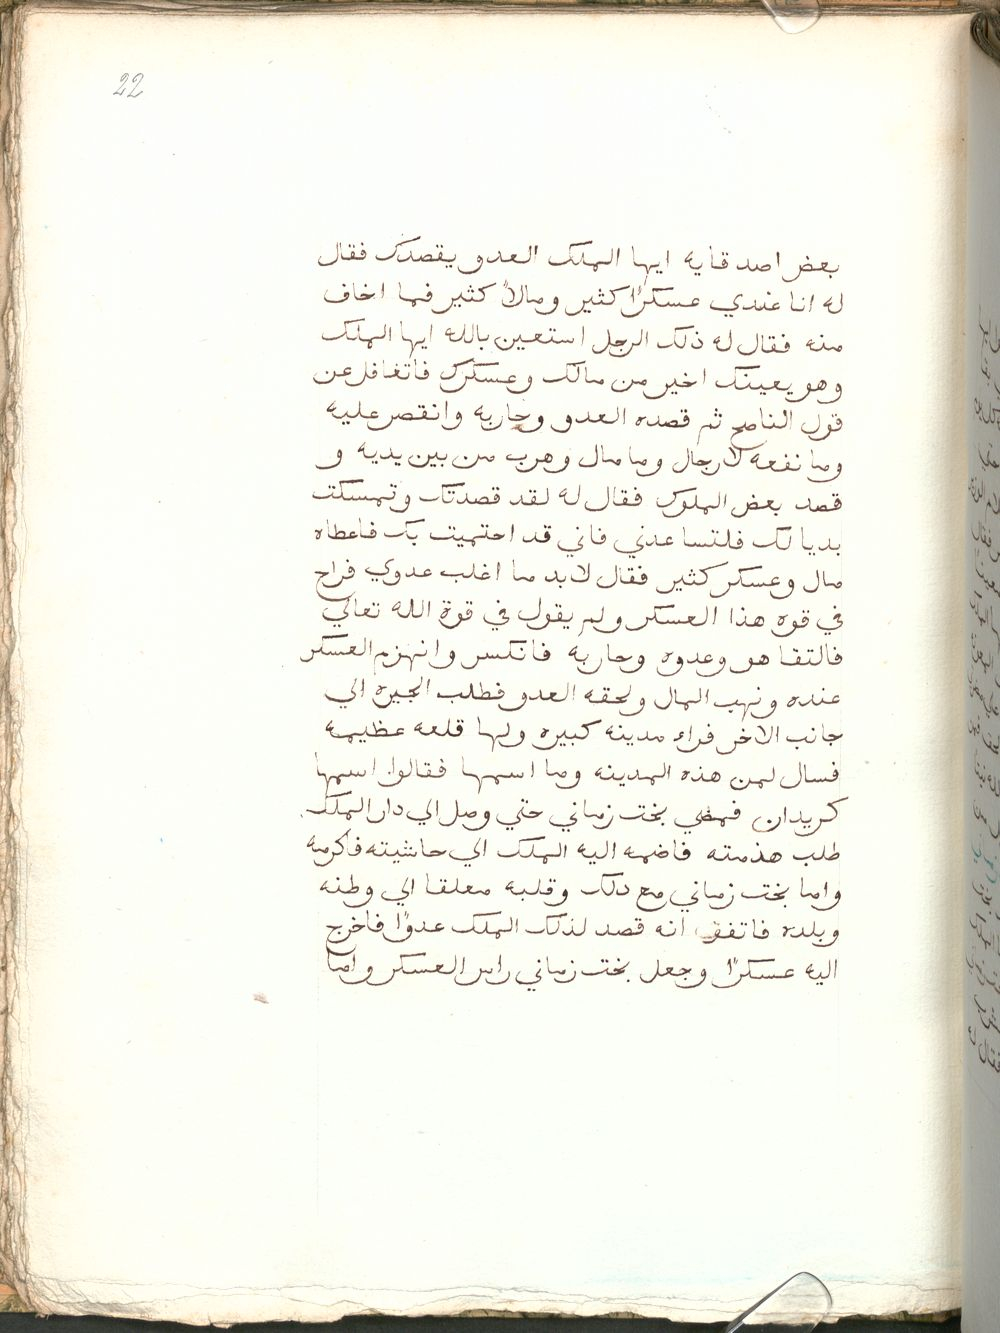 22
بعض اصدقايه ايها الملك العدو يقصدك فقال
له انا عندي عسكرًا كثير ومالاً كثير فما اخاف
منه فقال له ذلك الرجل استعين بالله ايها الملك
وهو يعينك اخير من مالك وعسكرك فاتغافل عن
قول الناصح ثم قصده العدو وحاربه وانقصر عليه
وما نفعه لا رجال وما مال وهرب من بين يديه و
قصد بعض الملوك فقال له لقد قصدتك وتمسكت
بديالك فلتساعدني فاني قد احتميت بك فاعطاه
مال وعسكر كثير فقال لابد ما اغلب عدوي فراح
في قوه هذا العسكر ولم يقول في قوة الله تعالي
فالتقا هو وعدوه وحاربه فانكسر وانهزم العسكر
عنده ونهب المال ولحقه العدو فطلب الجيره الي
جانب الاخر فراء مدينه كبيره ولها قلعه عظيمه
فسال لمن هذه المدينه وما اسمها فقالوا اسمها
كريدان فمضي بخت زماني حتي وصل الي دار الملك
طلب هذمته فاضمه اليه الملك الي حاشيته فاكرمه
واما بخت زماني مع دلك وقلبه معلقا الي وطنه
وبلده فاتفق انه قصد لذلك الملك عدوًا فاخرج
اليه عسكرًا وجعل بخت زماني راس العسكر واما